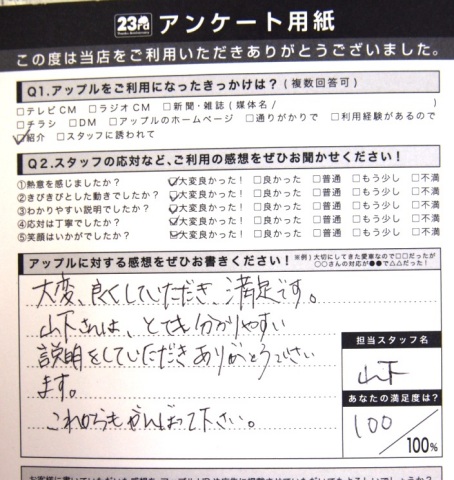 23rd アンケート用紙
この度は当店をご利用いただきありがとうございました。
Q1.アップルをご利用になったきっかけは？(複数回答可)
□テレビCM □ラジオCM □新聞・雑誌(媒体名/ )
□チラシ □DM □アップルのホームページ □通りがかりで □利用経験があるので
☑紹介 □スタッフに誘われて
Q2.スタッフの応対など、ご利用の感想をぜひお聞かせください！
①熱意を感じましたか？ ☑大変良かった！ □良かった □普通 □もう少し □不満
②きびきびとした動きでしたか？ ☑大変良かった！ □良かった □普通 □もう少し □不満
③わかりやすい説明でしたか？ ☑大変良かった！ □良かった □普通 □もう少し □不満
④応対は丁寧でしたか？ ☑大変良かった！ □良かった □普通 □もう少し □不満
⑤笑顔はいかがでしたか？ ☑大変良かった！ □良かった □普通 □もう少し □不満
アップルに対する感想をぜひお書きください！ ※例)大切にしてきた愛車なので□□だったが
○○さんの対応が●●で△△だった！
大変、良くしていただき、満足です。
山下さんは、とても分かりやすい
説明をしていただきありがとうござい
ます。
これからもがんばって下さい。
担当スタッフ名
山下
あなたの満足度は？
100
100%